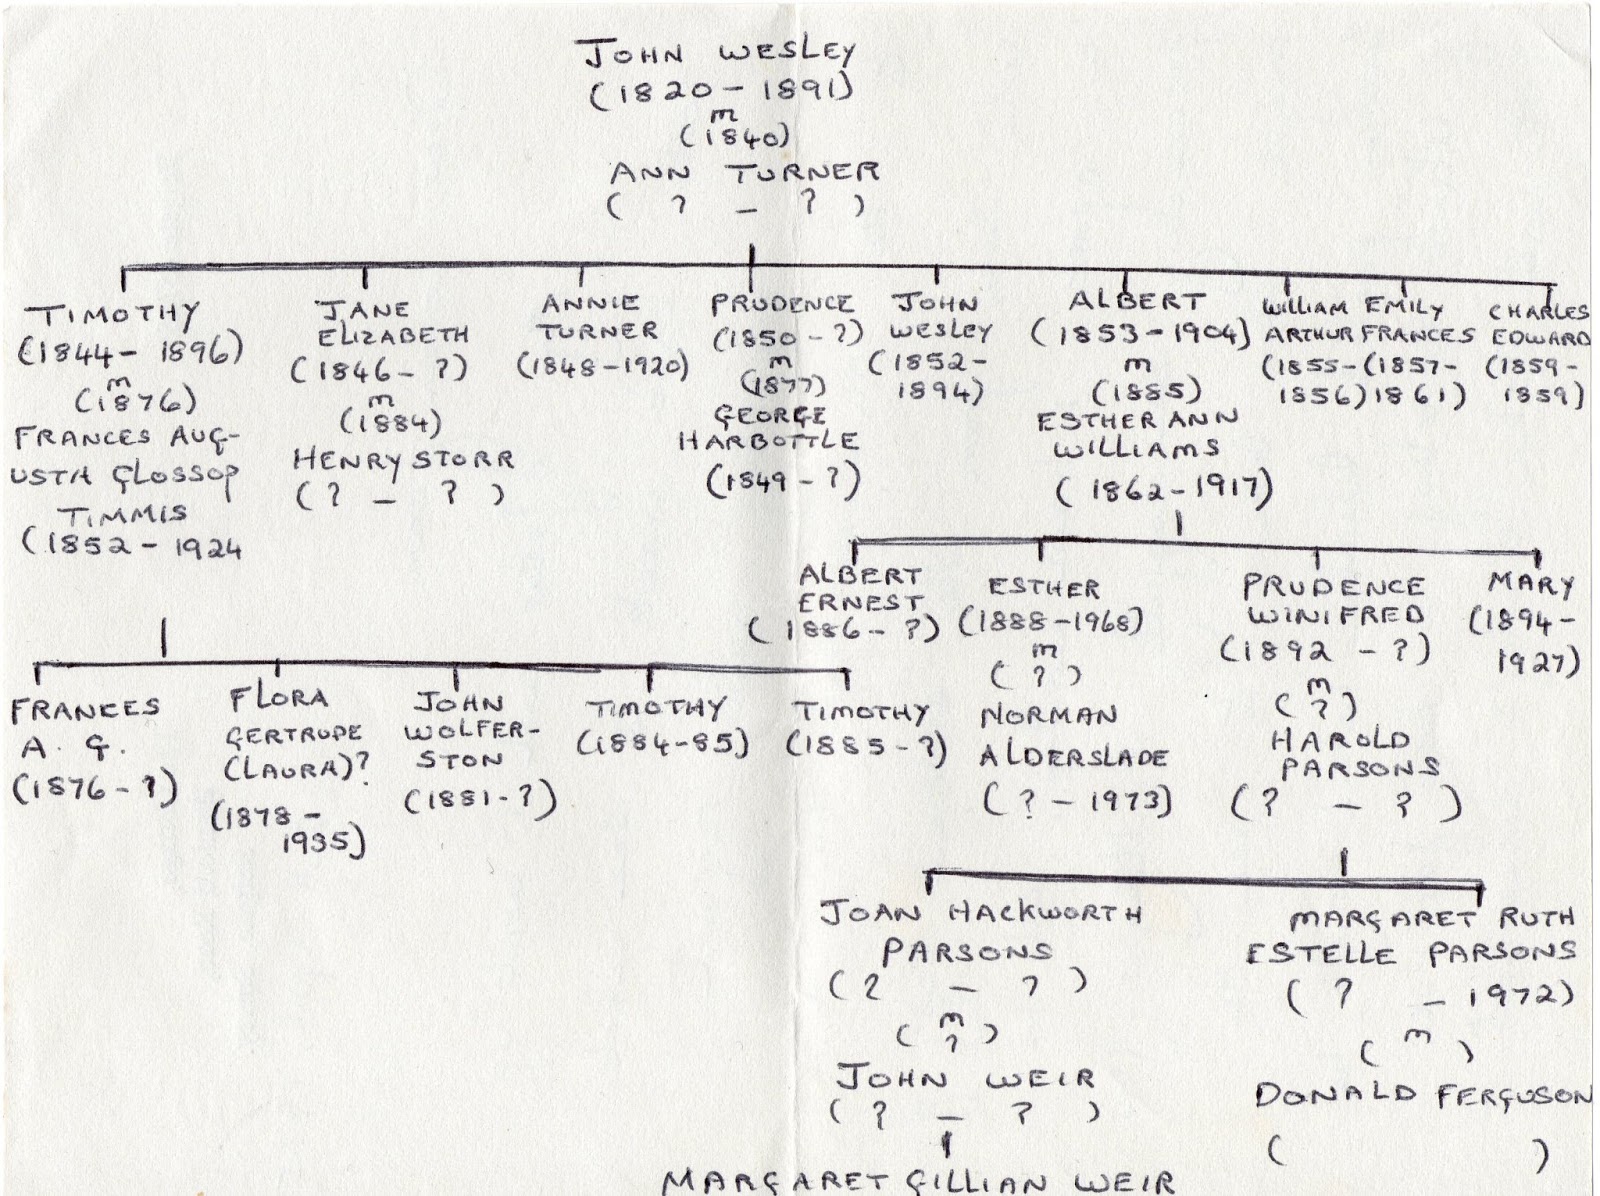 JOHN WESLEY
(1820 - 1891)
m
(1840)
ANN TURNER
( ? - ? )
TIMOTHY
(1844 - 1896)
m
(1876)
FRANCES AUG-
USTA GLOSSOP
TIMMIS
(1852 - 1924
JANE
ELIZABETH
(1846 - ?)
m
(1884)
HENRY STORR
(? - ? )
ANNIE
TURNER
(1848-1920)
PRUDENCE
(1850 - ?)
m
(1877)
GEORGE
HARBOTTLE
(1849 - ?)
JOHN
WESLEY
(1852-
1894)
ALBERT
(1853-1904)
m
(1885)
ESTHER ANN
WILLIAMS
(1862-1917)
WILLIAM
ARTHUR
(1855-
1856)
EMILY
FRANCES
(1857-
1861)
CHARLES
EDWARD
(1859-
1859)
FRANCES
A. G.
(1876 - ?)
FLORA
GERTRUDE
(LAURA)?
(1878 -
1935)
JOHN
WOLFER-
STON
(1881-?)
TIMOTHY
(1884-85)
TIMOTHY
(1885-?)
ALBERT
ERNEST
(1886-?)
ESTHER
(1888-1968)
m
(?)
NORMAN
ALDERSLADE
(? - 1973)
PRUDENCE
WINIFRED
(1892 - ?)
m
(?)
HAROLD
PARSONS
(? - ?)
MARY
(1894-
1927)
JOAN HACKWORTH
PARSONS
(? - ?)
m
(?)
JOHN WEIR
(? - ?)
MARGARET GILLIAN WEIR
MARGARET RUTH
ESTELLE PARSONS
(? - 1972)
( m )
DONALD FERGUSON
( )